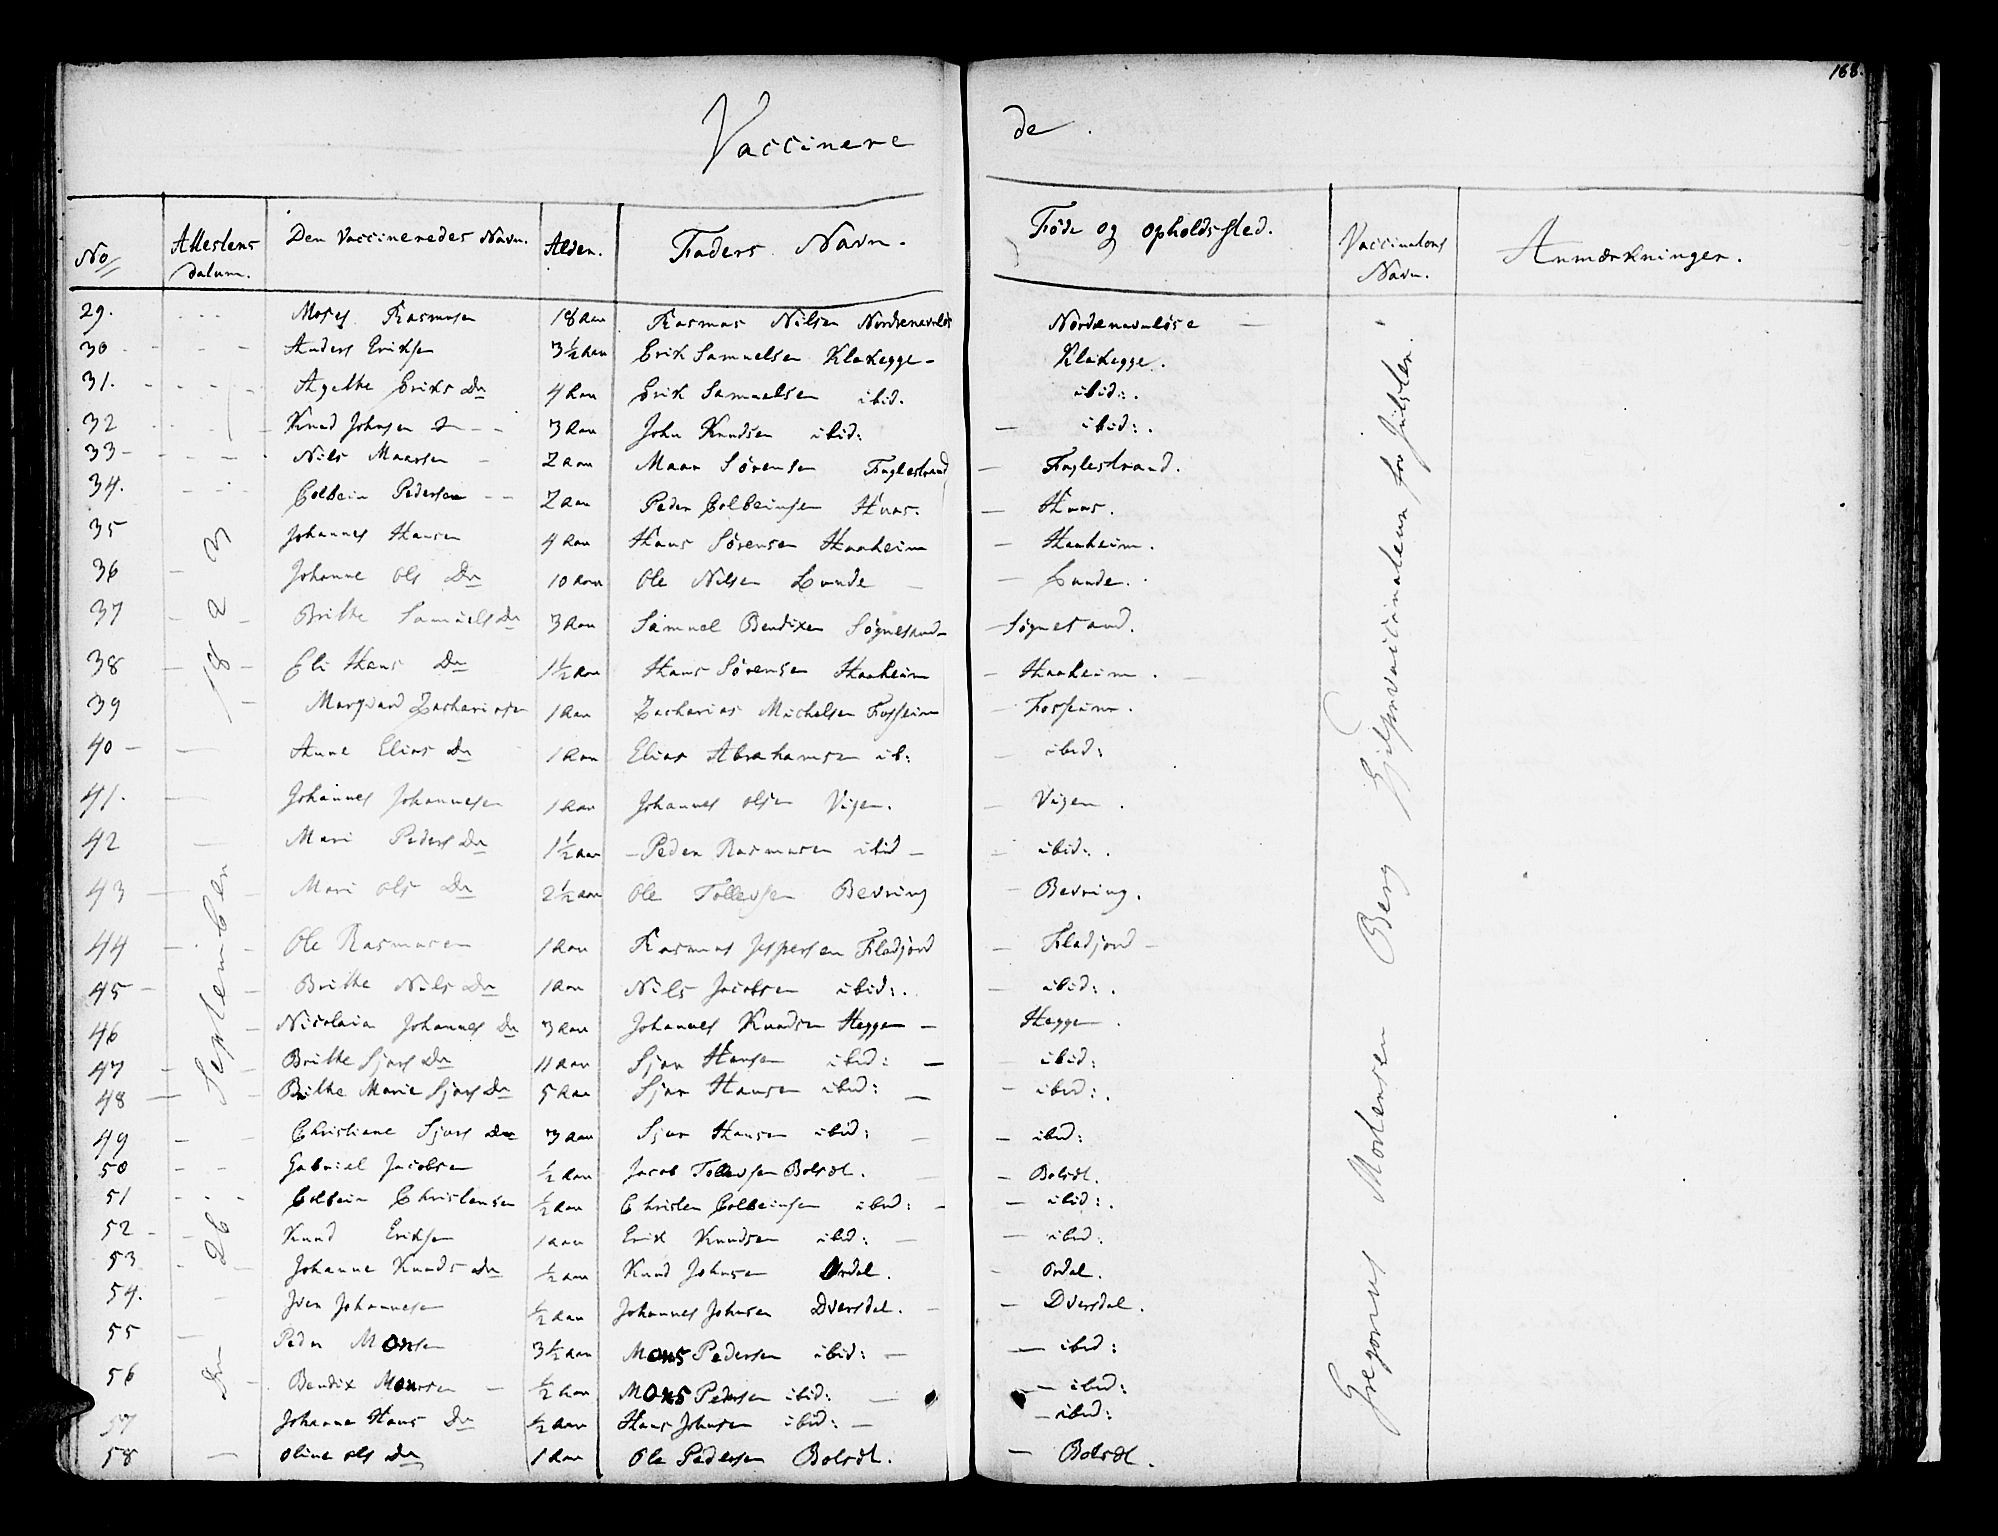 168.
Vaccinere de.
No Attestens datum. Den Vaccineredes Navn. Alder. Faders Navn. Føde og opholdssted. Vaccinatørs Navn. Anmærkninger.
29. Moses Rasmusen 18 Aar Rasmus Nilsen Nordrenavnløse Nordrenavnløse
30 Anders Eriksen 3½ Aar Erik Samuelsen Klakegge Klakegge.
31. Agethe Eriks Dr 4 Aar Erik Samuelsen ibid. ibid:.
32 Knud Johnsen 3 Aar John Knudsen ibid: ibid:.
33 Nils Maarsen 2 Aar Maar Sørensen Fuglestrand Fuglestrand.
34. Colbein Pedersen 2 Aar Peder Colbeinsen Huus. Huus.
35 Johannes Hansen 4 Aar Hans Sørensen Haaheim Haaheim.
36 Johanne Ols Dr 10 Aar Ole Nilsen Lunde Lunde.
37 Brithe Samuels Dr 3 Aar Samuel Bendixen Søgnesand Søgnesand.
38 Eli Hans Dr 1½ Aar Hans Sørensen Haaheim Haaheim.
39 Marqvard Zachariasen 1 Aar Zacharias Michelsen Fosheim Fosheim.
40 Anne Elias Dr 1 Aar Elias Abrahamsen ib: ibid:
41. Johannes Johannesen 1 Aar Johannes Olsen Vigen. Vigen.
42 Mari Peders Dr 1½ Aar Peder Rasmusen ibid ibid:.
43 Mari Ols Dr 2½ Aar Ole Tollevsen Bevring Bevring.
44 Ole Rasmusen 1 Aar Rasmus Jespersen Fladjord Fladjord
45 Brithe Nils Dr 1 Aar Nils Jacobsen ibid:. ibid:.
46 Nicolaia Johannes Dr 3 Aar Johannes Knudsen Heggen Heggen.
47 Brithe Sjurs Dr 11 Aar Sjur Hansen ibid: ibid:
48 Brithe Marie Sjurs Dr 5 Aar Sjur Hansen ibid: ibid:.
49 Christiane Sjurs Dr 3 Aar Sjur Hansen ibid: ibid:
50 Gabriel Jacobsen ½ Aar Jacob Tollevsen Bolsæt. Bolsæt.
51 Colbein Christensen ½ Aar Christen Colbeinsen ibid: ibid:.
52 Knud Eriksen 1 Aar Erik Knudsen ibid: ibid:
53 Johanne Knuds Dr ½ Aar Knud Johnsen Ordal. Ordal.
54. Iver Johannesen ½ Aar Johannes Johnsen Dversdal. Dversdal.
55 Peder Monsen 3½ Aar Mons Pedersen ibid: ibid:
56 Bendix Monsen ½ Aar Mons Pedersen ibid: ibid:
57 Johanne Hans Dr ½ Aar Hans Johnsen ibid: ibid:
58 Oline Ols Dr 1 Aar Ole Pedersen Bolsæt. Bolsæt.
Den 26 September 1823
Gregorius Mortensen Berg Hjelpevaccinateur for Jülster.